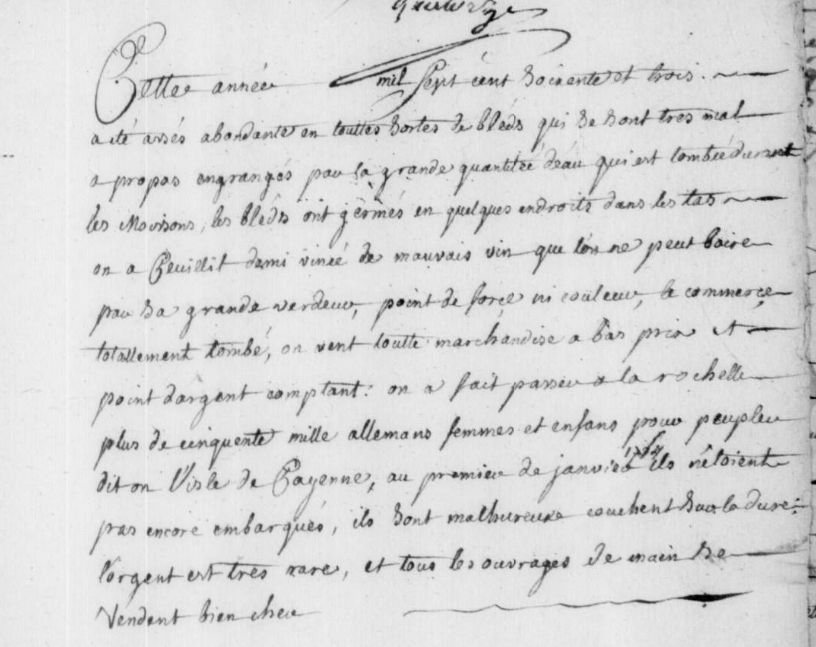 Cette année mil sept cent soixente et trois.
a été assés abondante en touttes sortes de bléds qui se sont tres mal
a propos engrangés par la grande quantitée d'eau qui est tombée durant
les Moissons, les bléds ont gérmés en quelques endroits dans les tas
on a Ceuillit demi vinée de mauvais vin que l'on ne peut boire
par sa grande verdeur, point de force ni couleur, le commerce
totallement tombé, on vent toutte marchandise a bas prix et
point d'argent comptant: on a fait passer a la rochelle
plus de cinquente mille allemans femmes et enfans pour peupler
dit on l'isle de Cayenne, au premier de janvier 1764 ils n'étoient
pas encore embarqués, ils sont malhureux couchent sur la dure:
l'argent est tres rare, et tous les ouvrages de main se
vendent bien cher